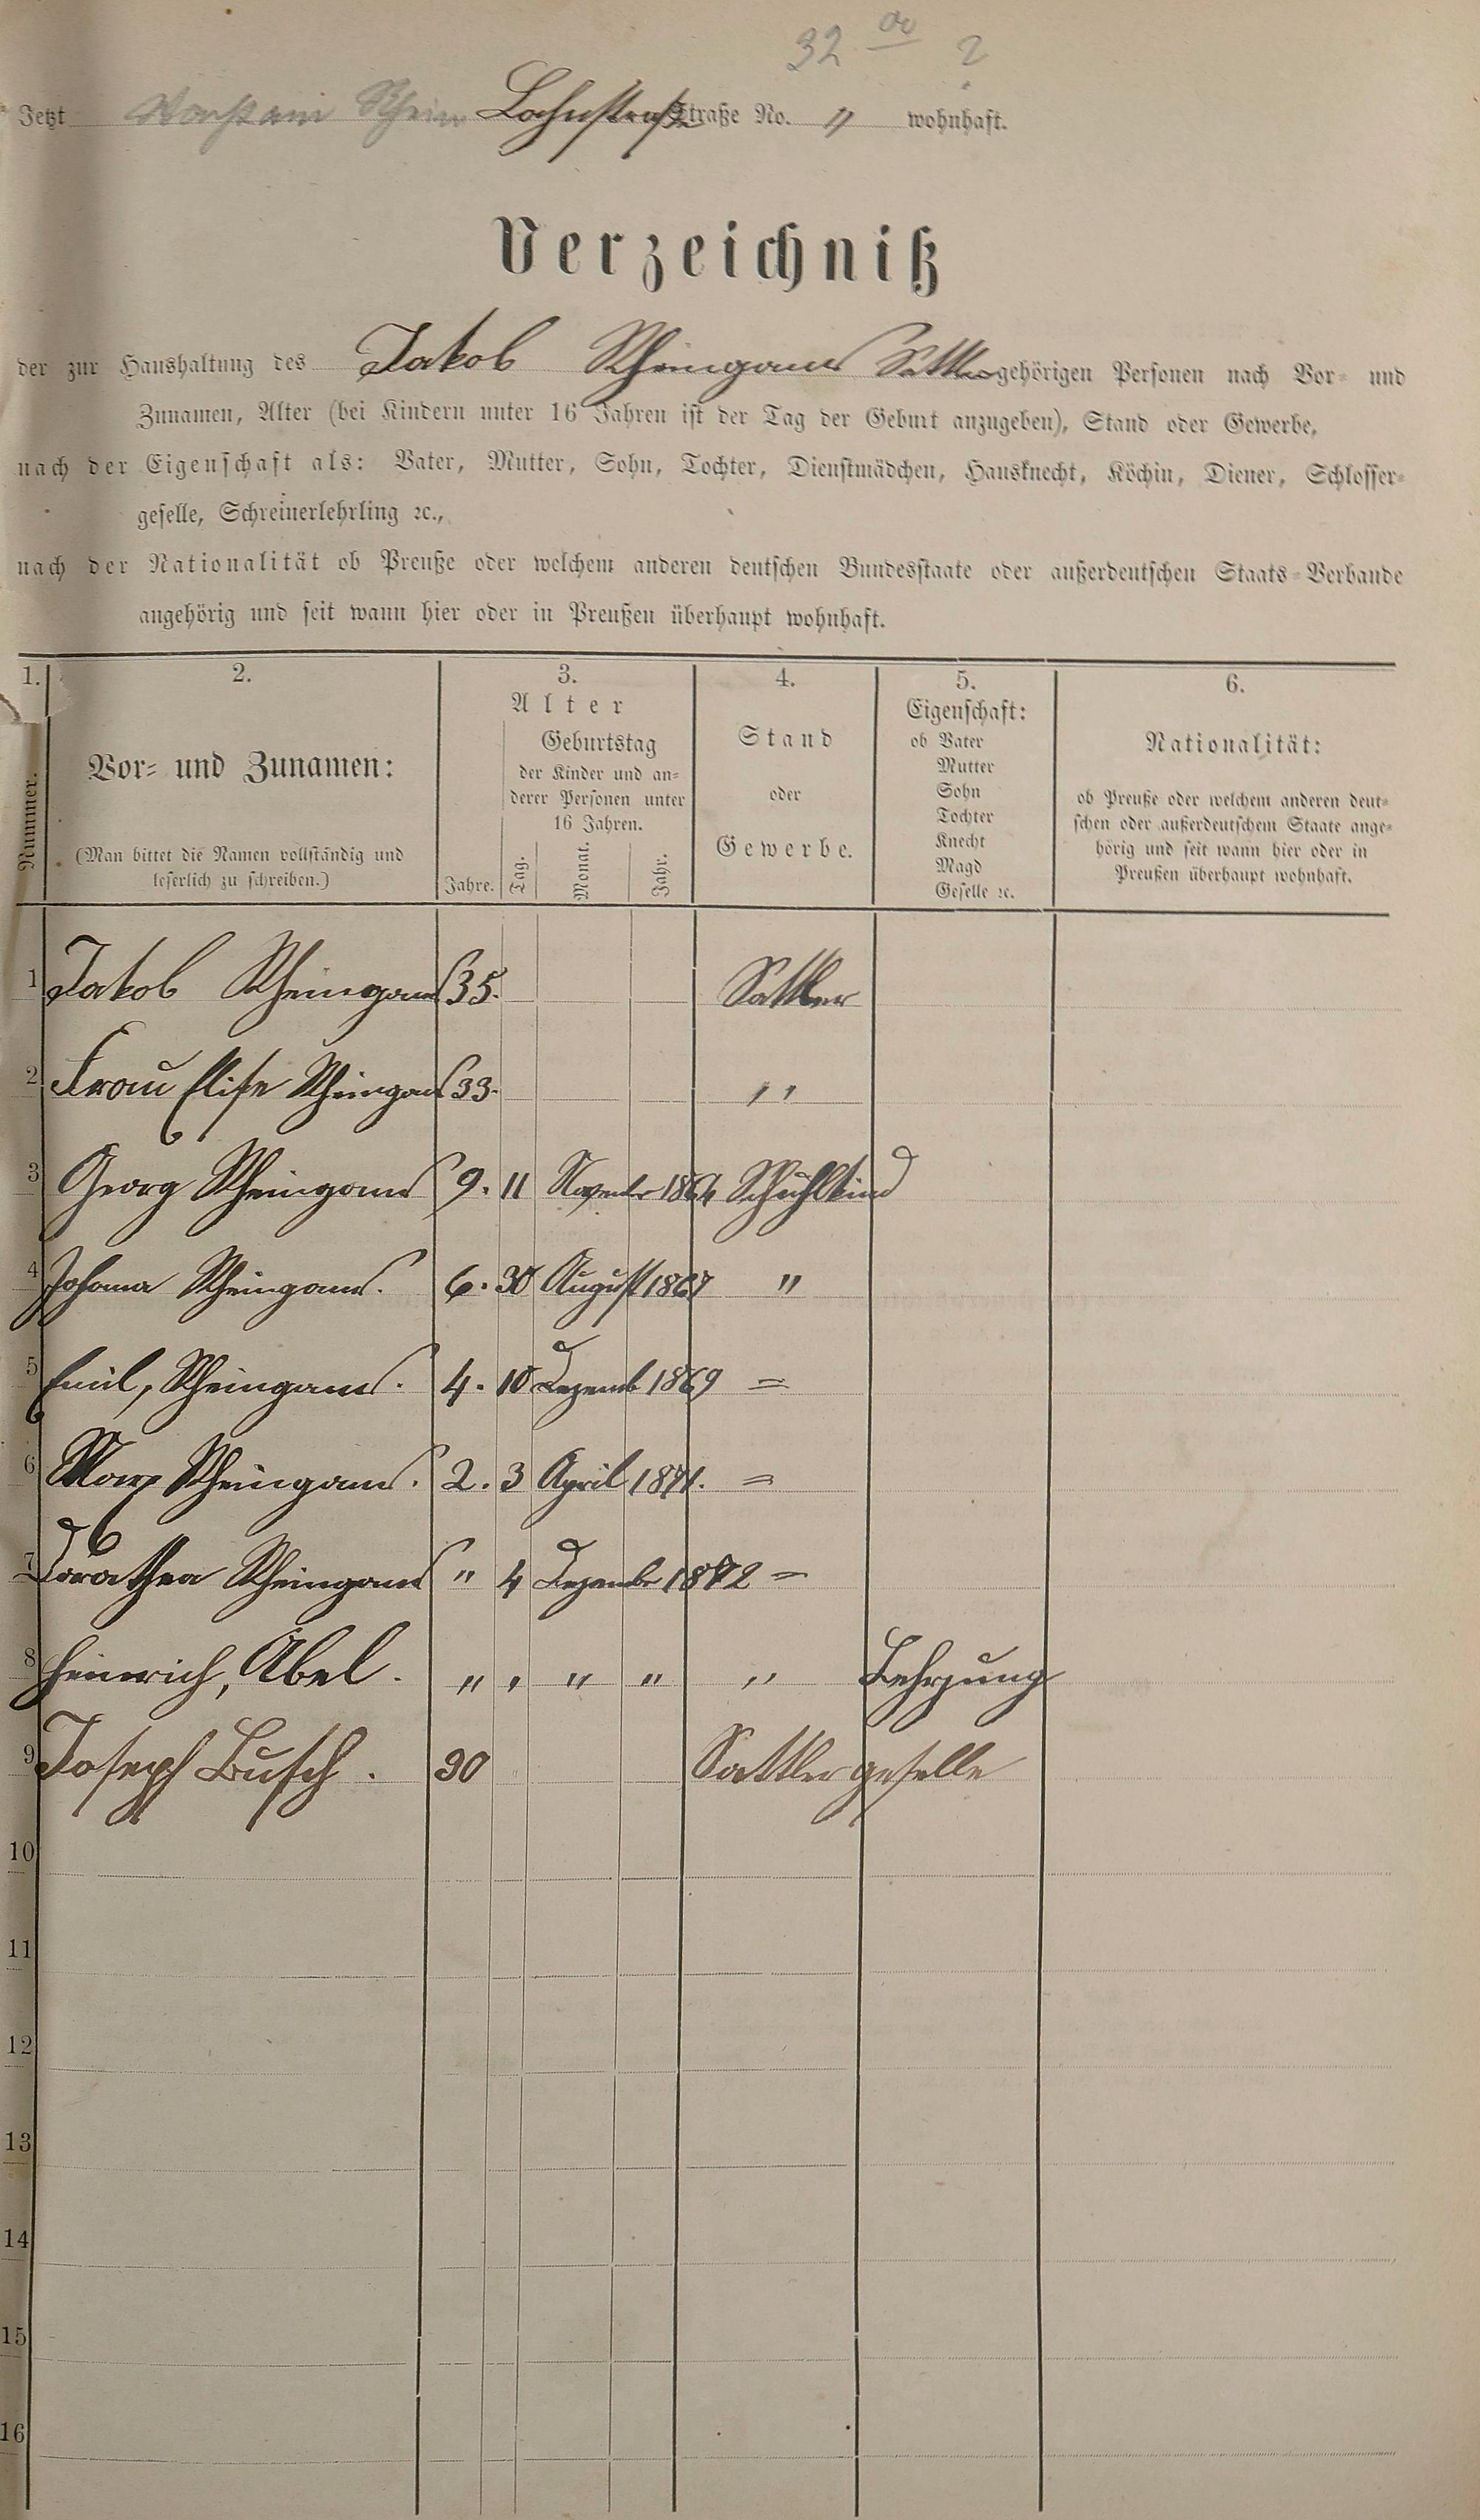 32 00 ?
Jetzt Lahnstraße Straße No. 11 wohnhaft.
Verzeichniß
der zur Haushaltung des Jakob Rheingans Sattler gehörigen Personen nach Vor- und
Zunamen, Alter (bei Kindern unter 16 Jahren ist der Tag der Geburt anzugeben), Stand oder Gewerbe,
nach der Eigenschaft als: Vater, Mutter, Sohn, Tochter, Dienstmädchen, Hausknecht, Köchin, Diener, Schlosser-
geselle, Schreinerlehrling ꝛc.,
nach der Nationalität ob Preuße oder welchem anderen deutschen Bundesstaate oder außerdeutschen Staats-Verbande
angehörig und seit wann hier oder in Preußen überhaupt wohnhaft.
1. 2. 3. 4. 5. 6.
Nummer.
Vor- und Zunamen:
(Man bittet die Namen vollständig und
leserlich zu schreiben.)
Alter
Jahre.
Geburtstag
der Kinder und an-
derer Personen unter
16 Jahren.
Tag. Monat. Jahr.
Stand
oder
Gewerbe.
Eigenschaft:
ob Vater
Mutter
Sohn
Tochter
Knecht
Magd
Geselle ꝛc.
Nationalität:
ob Preuße oder welchem anderen deut-
schen oder außerdeutschem Staate ange-
hörig und seit wann hier oder in
Preußen überhaupt wohnhaft.
1 Jakob Rheingans 35. Sattler
2 Frau Elise Rheingans 33. "
3 Georg Rheingans 9. 11 November 1864 Schuhlkind
4 Johanna Rheingans. 6. 30 August 1867 "
5 Emil, Rheingans. 4. 10 Dezemb 1869 =
6 Marx Rheingans. 2. 3 April 1871. =
7 Dorathea Rheingans " 4 Dezember 1872 =
8 Heinrich, Abel. " " " " " Lehrjung
9 Joseph Busch. 30 Sattlergeselle
10
11
12
13
14
15
16